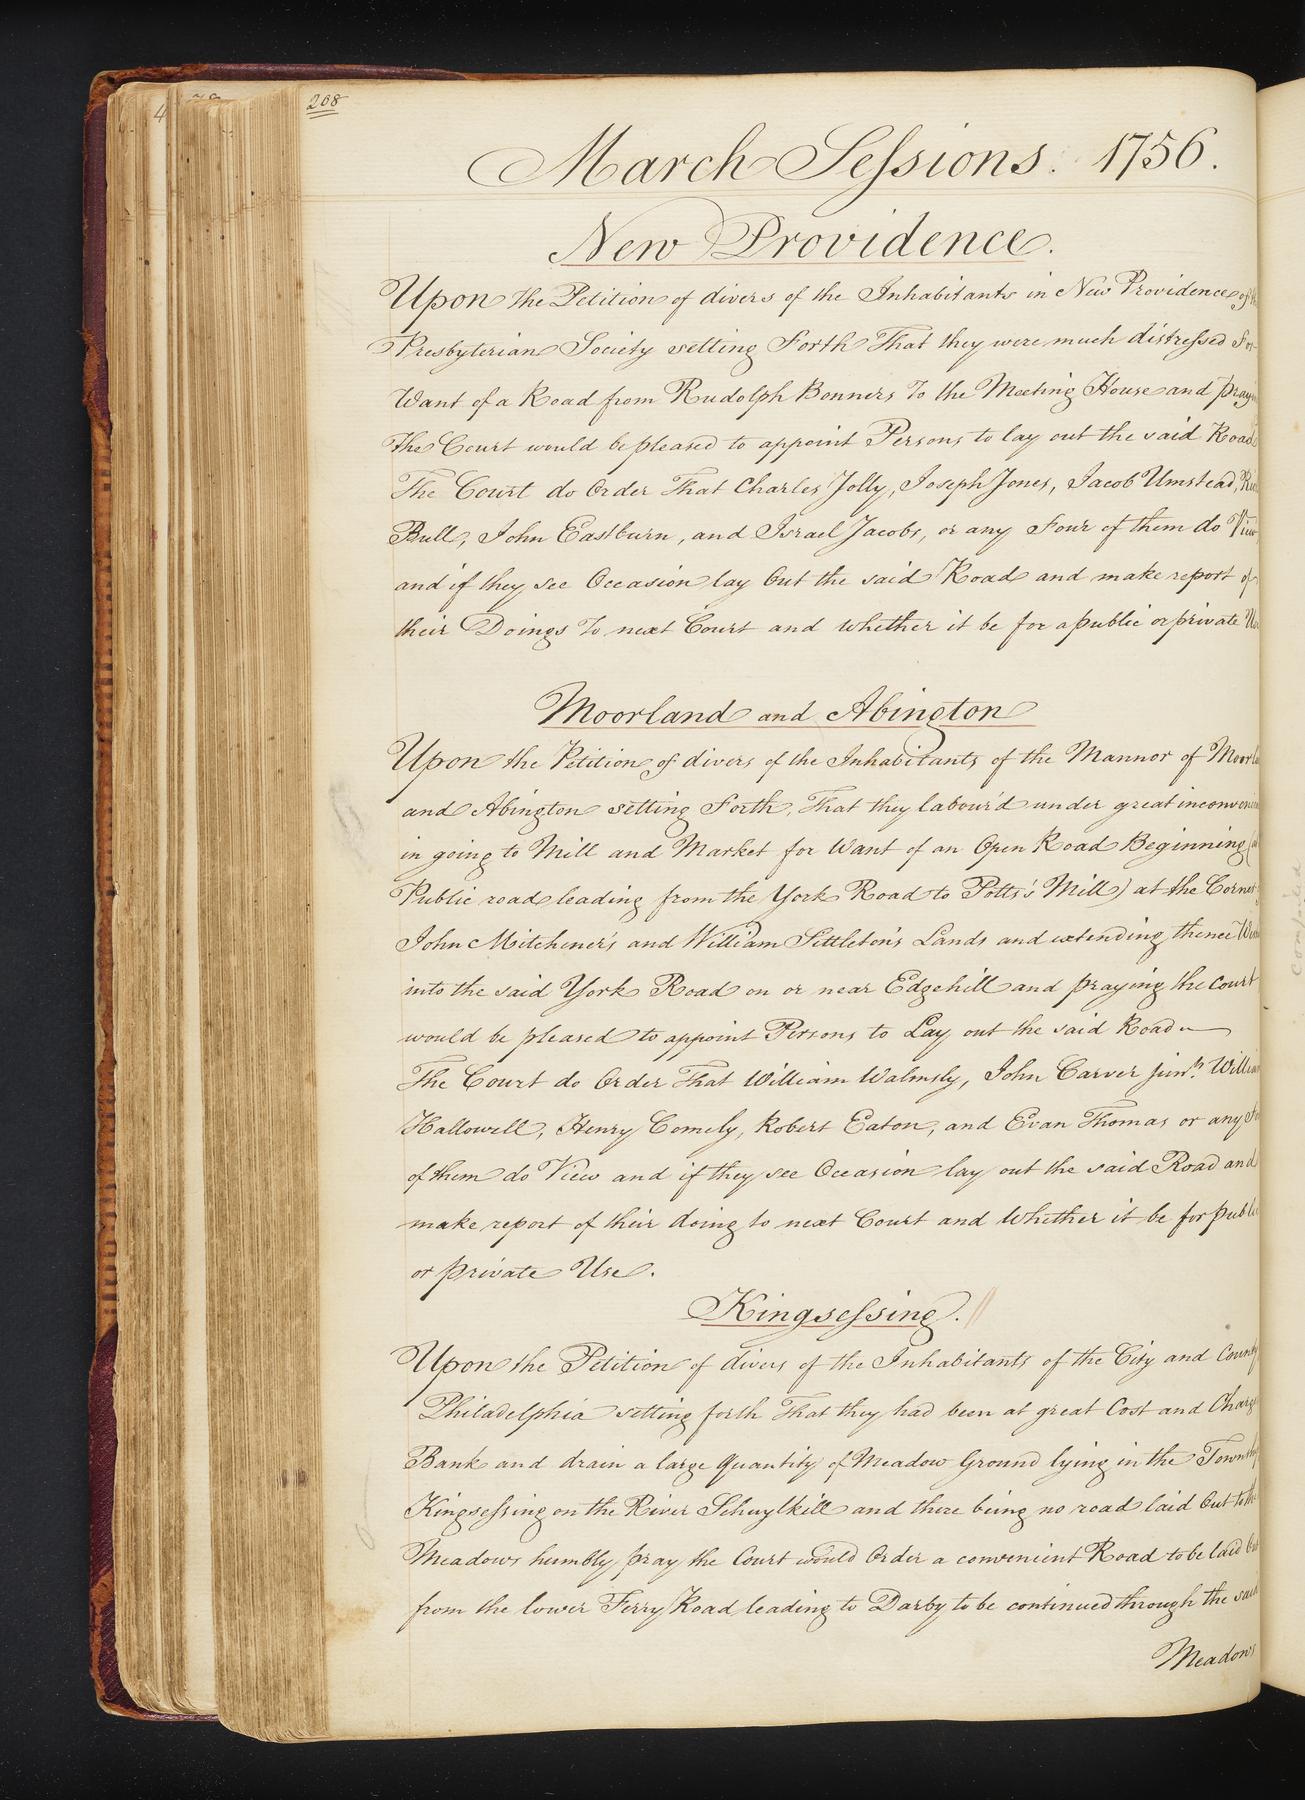 208
March Sessions. 1756.
New Providence.
Upon the Petition of divers of the Inhabitants in New Providence of
Presbyterian Society setting Forth That they were much distressed For
Want of a Road from Rudolph Bonners To the Meeting House and pray
the Court would be pleased to appoint Persons to lay out the said Road
The Court do Order That Charles Jolly, Joseph Jones, Jacob Umstead,
Bull, John Eastburn, and Israel Jacobs, or any Four of them do View
and if they see Occasion lay Out the said Road and make report of
their Doings To next Court and whether it be for a public or private
Moorland and Abington
Upon the Petition of divers of the Inhabitants of the Mannor of
and Abington setting Forth, That they labour'd under great
in going to Mill and Market for Want of an Open Road Beginning
Public road leading from the York Road to Potts's Mill) at the Corner
John Mitchener's and William Settleton's Lands and extending thence
into the said York Road on or near Edgehill and praying the Court
would be pleased to appoint Persons to Lay out the said Road
The Court do Order That William Walmsly, John Carver junr. William
Hallowell, Henry Comely, Robert Eaton, and Evan Thomas or any
of them do View and if they see Occasion lay out the said Road and
make report of their doing to next Court and Whether it be for public
or private Use.
Kingsessing. //
Upon the Petition of divers of the Inhabitants of the City and County
Philadelphia setting forth That they had been at great Cost and
Bank and drain a large Quantity of Meadow Ground lying in the
Kingsessing on the River Schuylkill and there being no road laid Out to
Meadows humbly pray the Court would Order a convenient Road to be laid
from the lower Ferry Road leading to Darby to be continued through the said
Meadows